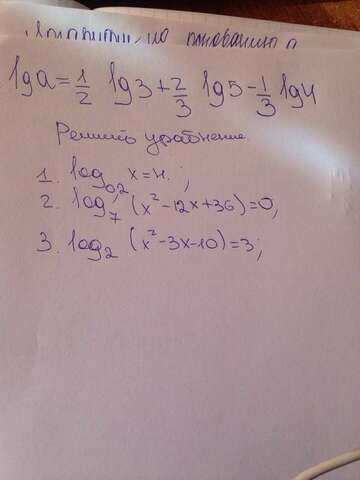 lg a = 1/2 lg 3 + 2/3 lg 5 - 1/3 lg 4
Решить уравнение
1. log₀,₂ x = 4;
2. log₇ (x² - 12x + 36) = 0;
3. log₂ (x² - 3x - 10) = 3;